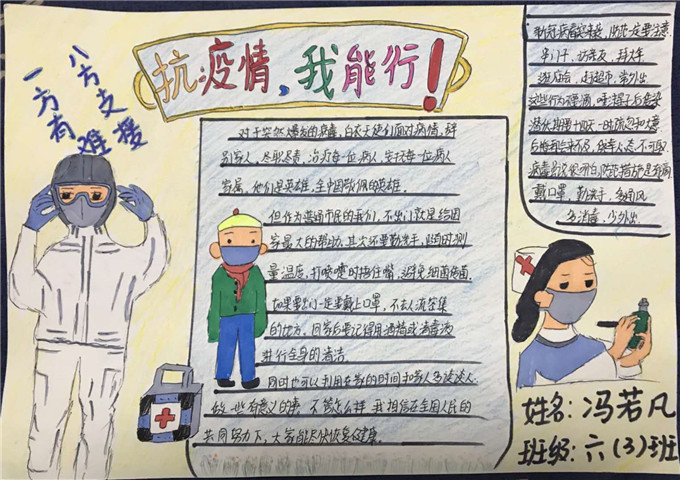 抗疫情,我能行!
八方支援
一方有难
对于突然爆发的病毒,白衣天使们面对病情,辞
别家人,尽职尽责,治疗每一位病人,安抚每一位病人
家属,他们是英雄,全中国敬佩的英雄。
但作为普通市民的我们,不出门就是给国
家最大的帮助,其次还要勤洗手,随时测
量温度,打喷嚏时捂住嘴,避免细菌
如果要出门一定要戴上口罩,不去人流密集
的地方,回家后要记得用酒精或消毒液
进行全身的清洁。
同时也可以利用在家的时间和家人多谈谈人
做一些有意义的事,不管怎么样,我相信在全国人民的
共同努力下,大家能尽快恢复健康。
新冠病毒,防范一定要注意
串门子,访亲友,拜大年
逛庙会,赶超市,常外出
这些行为
潜伏期
后悔
病毒
戴口罩,勤洗手,多通风
多消毒,少外出
姓名:冯若凡
班级:六(3)班